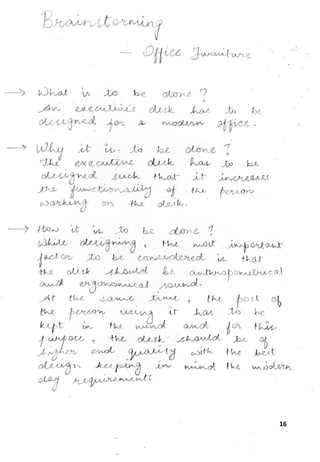 Brainstorming
— Office Furniture
→ What is to be done ?
An executive's desk has to be
designed for a modern office.
→ Why it is to be done ?
The executive desk has to be
designed such that it increases
the functionality of the person
working on the desk.
→ How it is to be done ?
While designing, the most important
factor to be considered is that
the desk should be anthropometrical
and ergonomical sound.
At the same time, the post of
the person using it has to be
kept in the mind and for this
purpose, the desk should be of
higher end quality with the best
design keeping in mind the modern
day requirements.
16